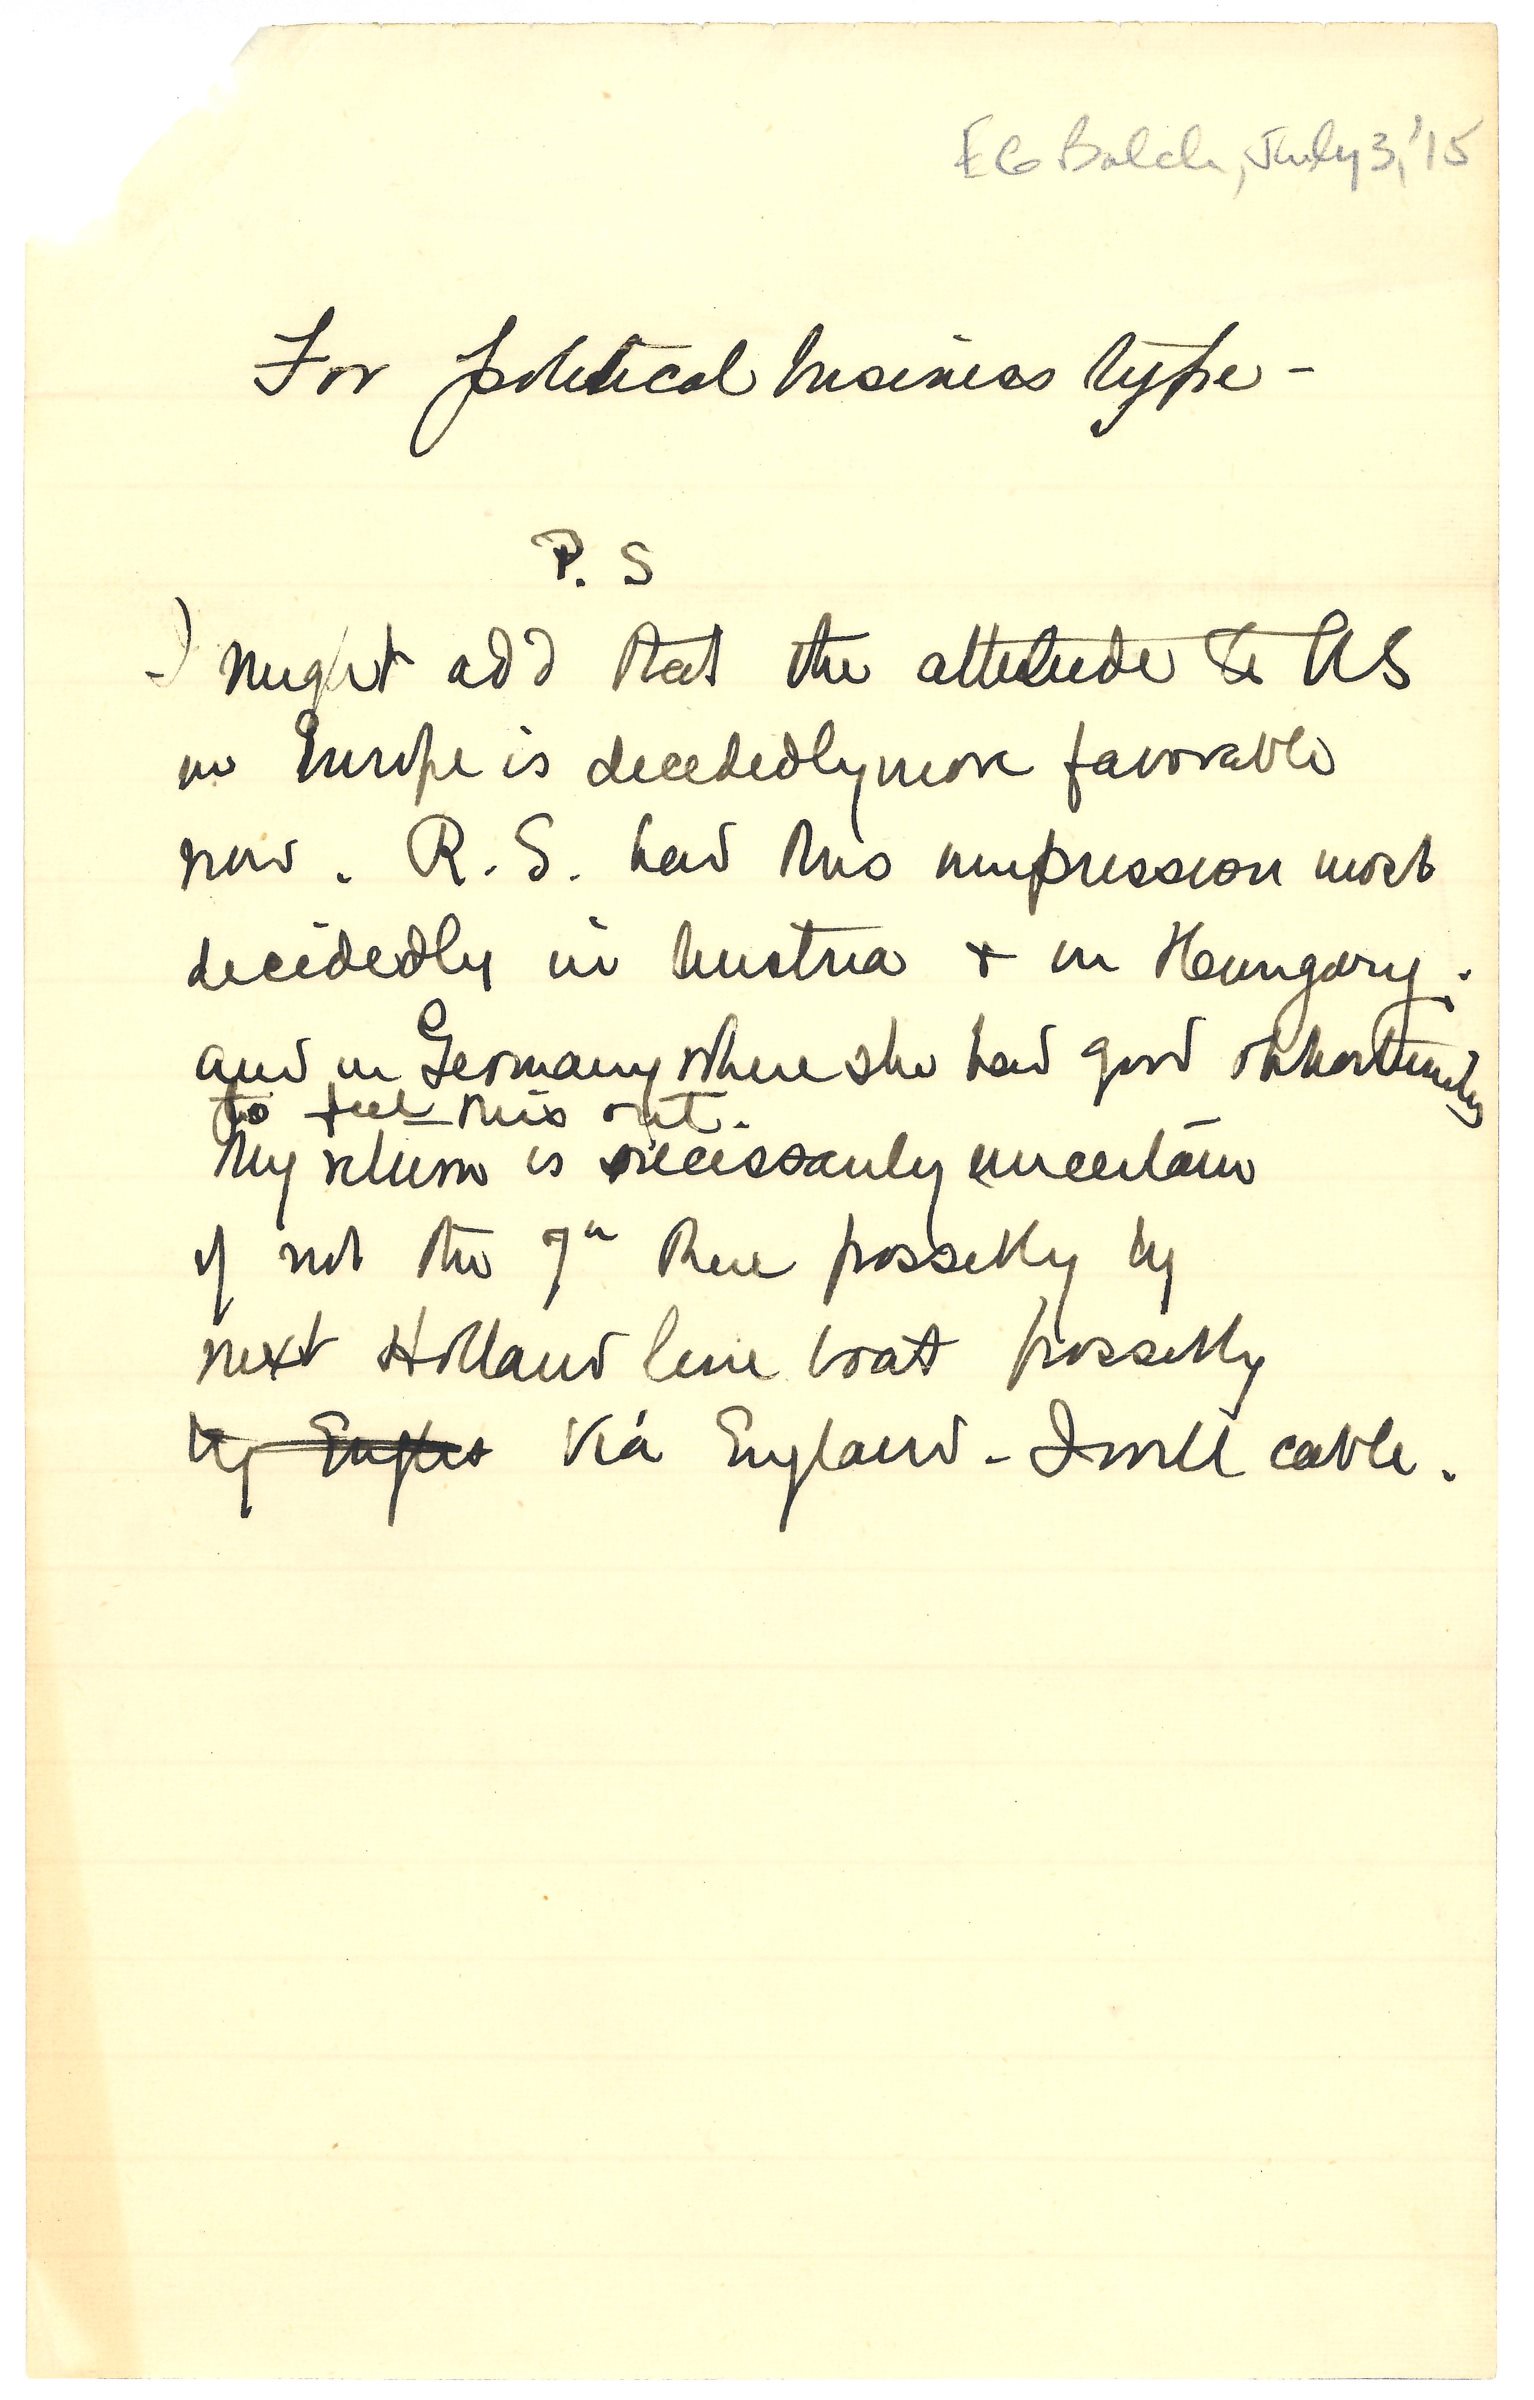 EG Balch, July 3, '15
For political business type -
P. S
I might add that the attitude to US
in Europe is decidedly more favorable
now. R. S. had this impression most
decidedly in Austria + in Hungary.
and in Germany where she had good opportunity
to feel this out.
My return is necessarily uncertain
if not the 7th then possibly by
next Holland line boat possibly
by via England - I will cable.